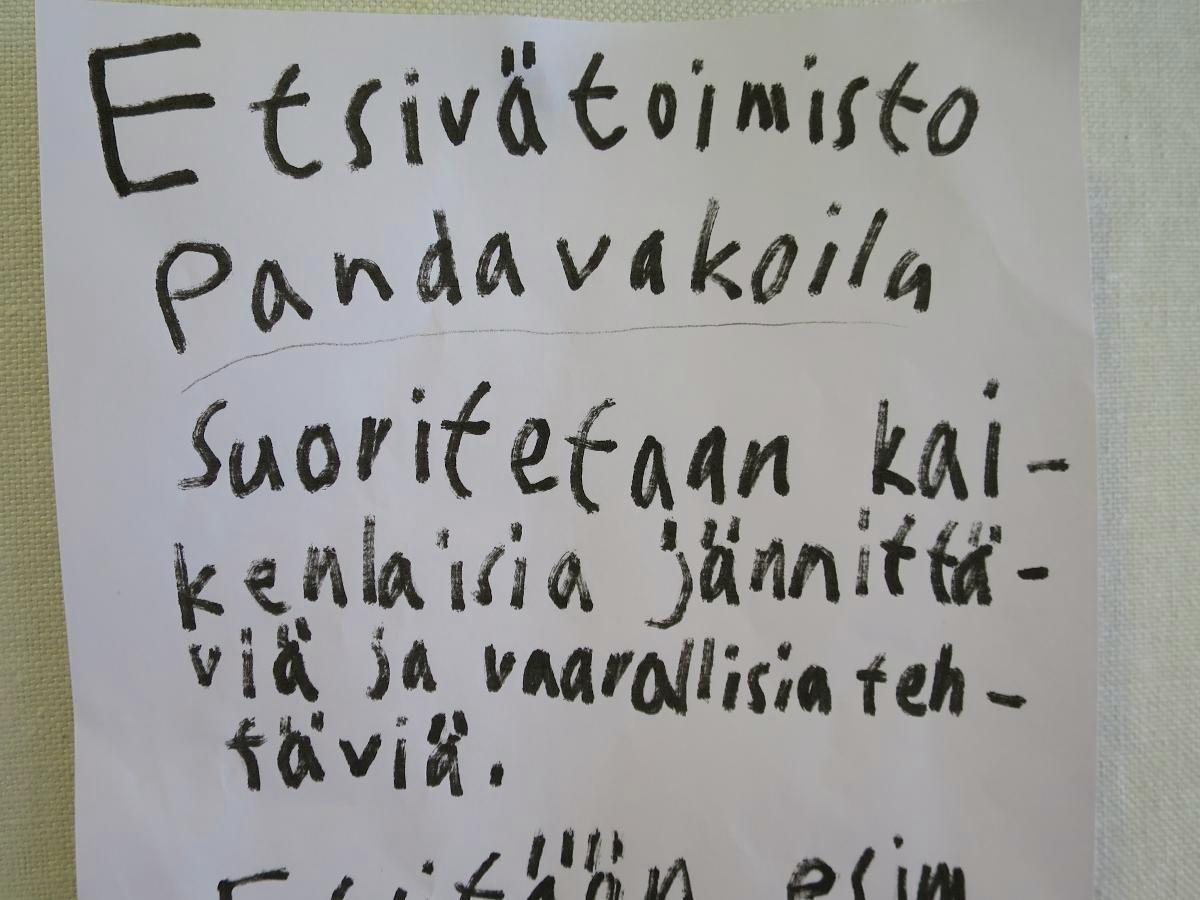 Etsivätoimisto
Pandavakoila
Suoritetaan kai-
kenlaisia jännittä-
viä ja vaarallisia teh-
täviä.
esim